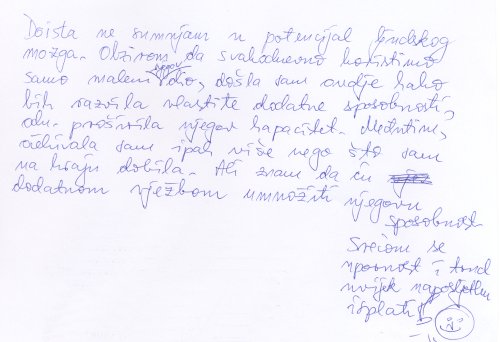 Doista ne sumnjam u potencijal ljudskog
mozga. Obzirom da svakodnevno koristimo
samo maleni njegov dio, došla sam ovdje kako
bih razvila vlastite dodatne sposobnosti,
odn. proširila njegov kapacitet. Međutim,
očekivala sam ipak više nego što sam
na kraju dobila. Ali znam da ću
dodatnom vježbom umnožiti njegovu
sposobnost
Srećom se
upornost i trud
uvijek naposljetku
isplati!